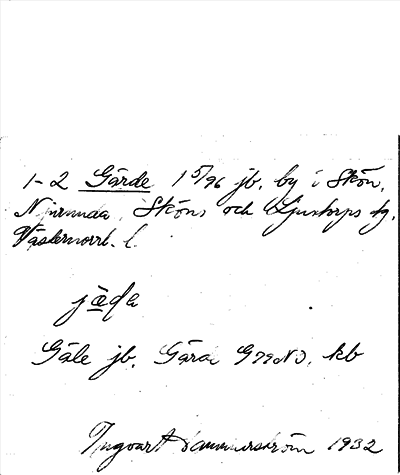 1-2 Gärde 1 5/96 jb. by i Skön,
Njurunda, Sköns och Ljustorps tg.
Västernorrl. l.
Gäle jb.
kb
Ingvart Hammarström 1932